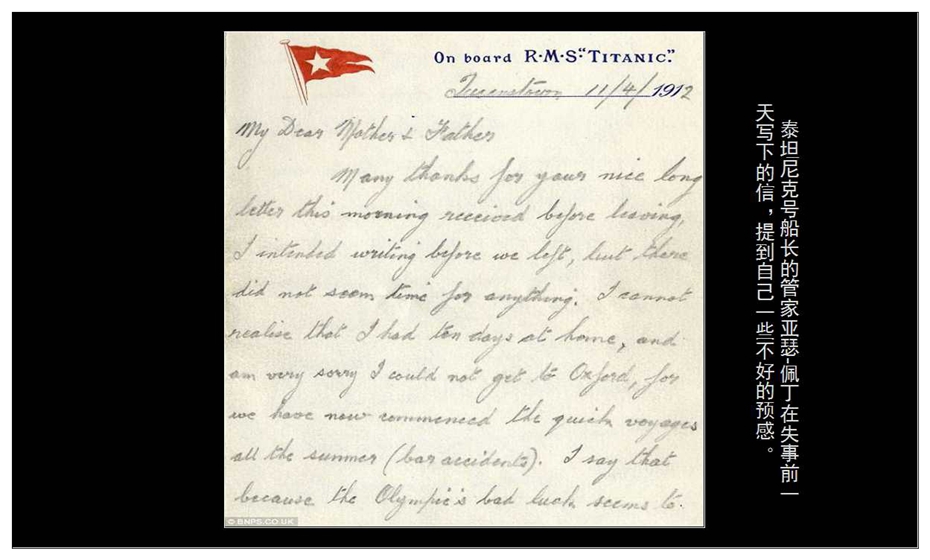 On board R·M·S "TITANIC."
Queenstown 11/4/1912
My Dear Mother & Father
Many thanks for your nice long
letter this morning received before leaving,
I intended writing before we left, but there
did not seem time for anything. I cannot
realise that I had ten days at home, and
am very sorry I could not get to Oxford, for
we have now commenced the quick voyages
all the summer (bar accidents). I say that
because the Olympic's bad luck seems to.
© BNPS.CO.UK
泰坦尼克号船长的管家亚瑟-佩丁在失事前一
天写下的信，提到自己一些不好的预感。